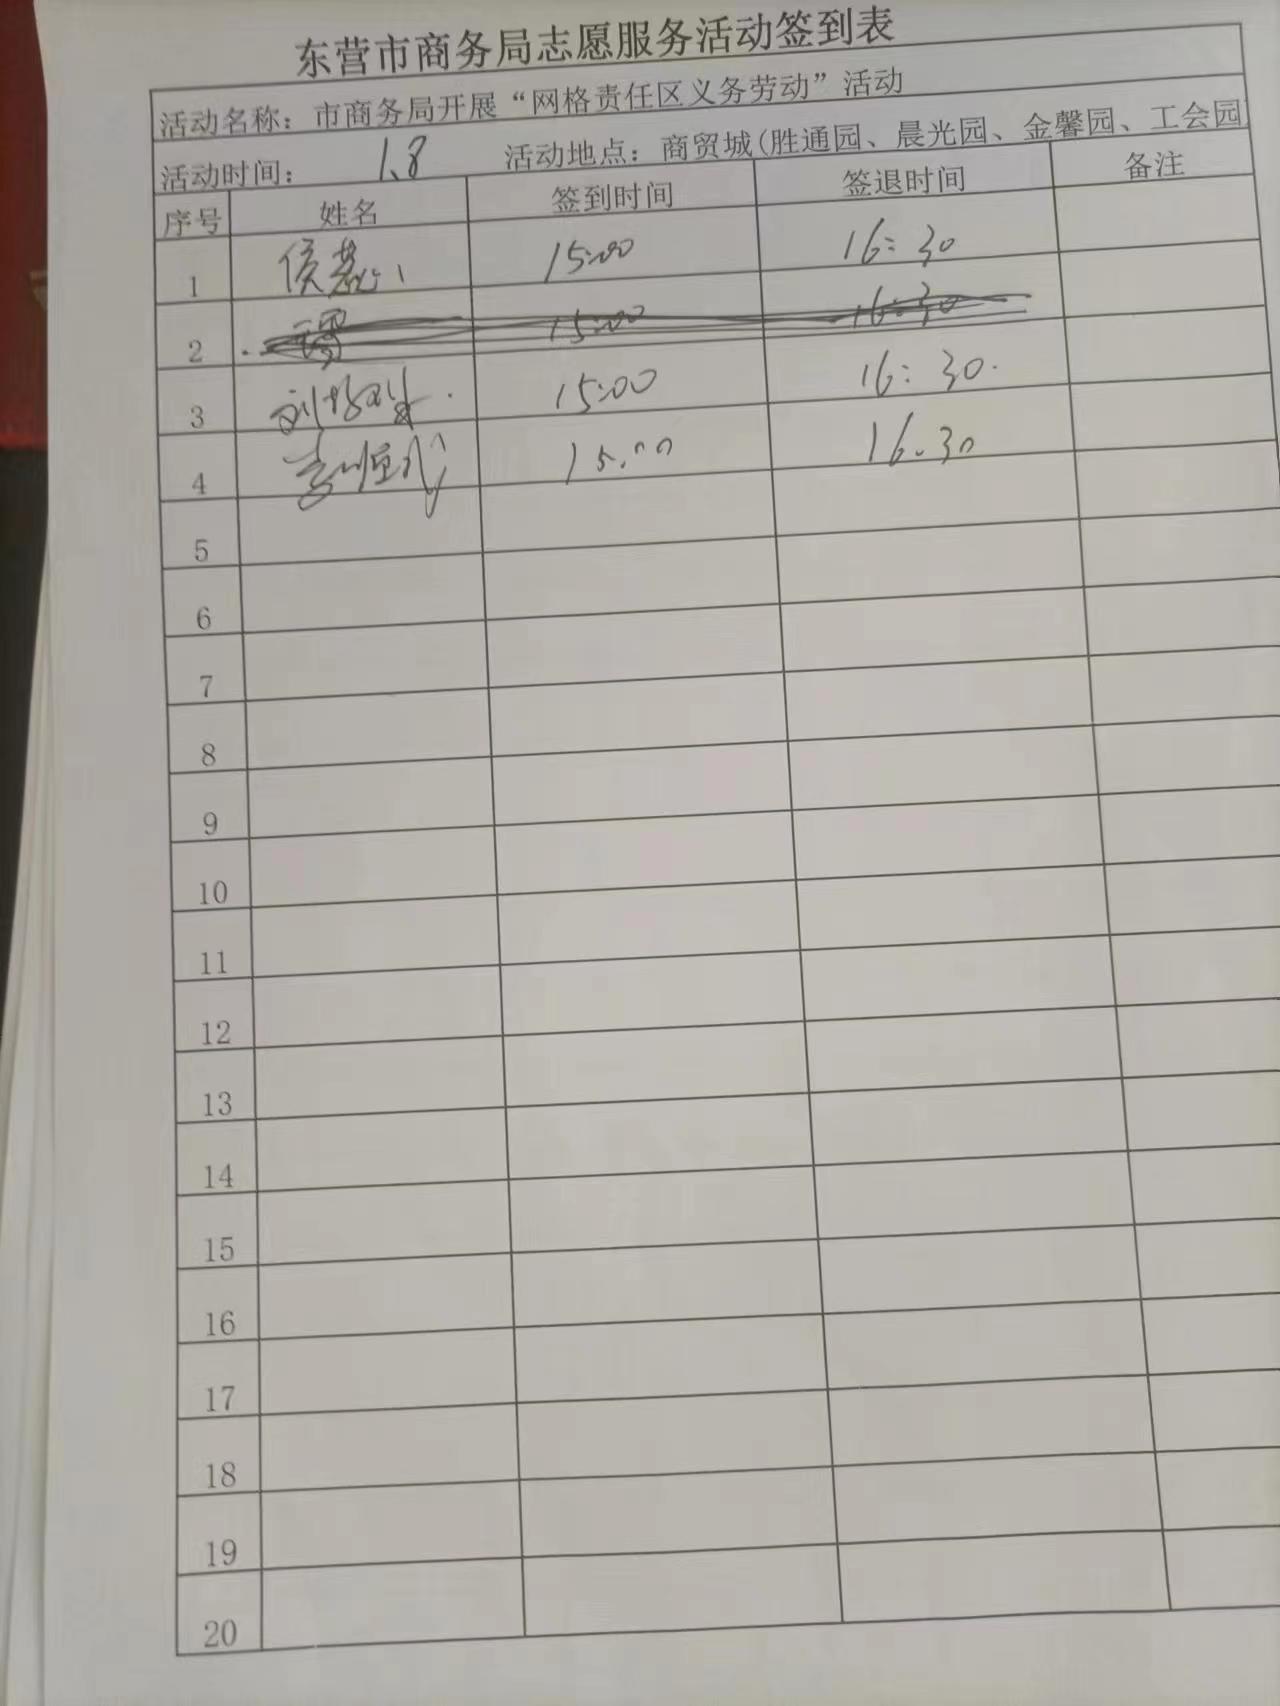 东营市商务局志愿服务活动签到表
活动名称：市商务局开展“网格责任区义务劳动”活动
活动时间： 1.8 活动地点：商贸城(胜通园、晨光园、金馨园、工会园
序号 姓名 签到时间 签退时间 备注
1 侯慧 15:00 16:30
2 15:00 16:30
3 刘 15:00 16:30.
4 15:00 16.30
5
6
7
8
9
10
11
12
13
14
15
16
17
18
19
20